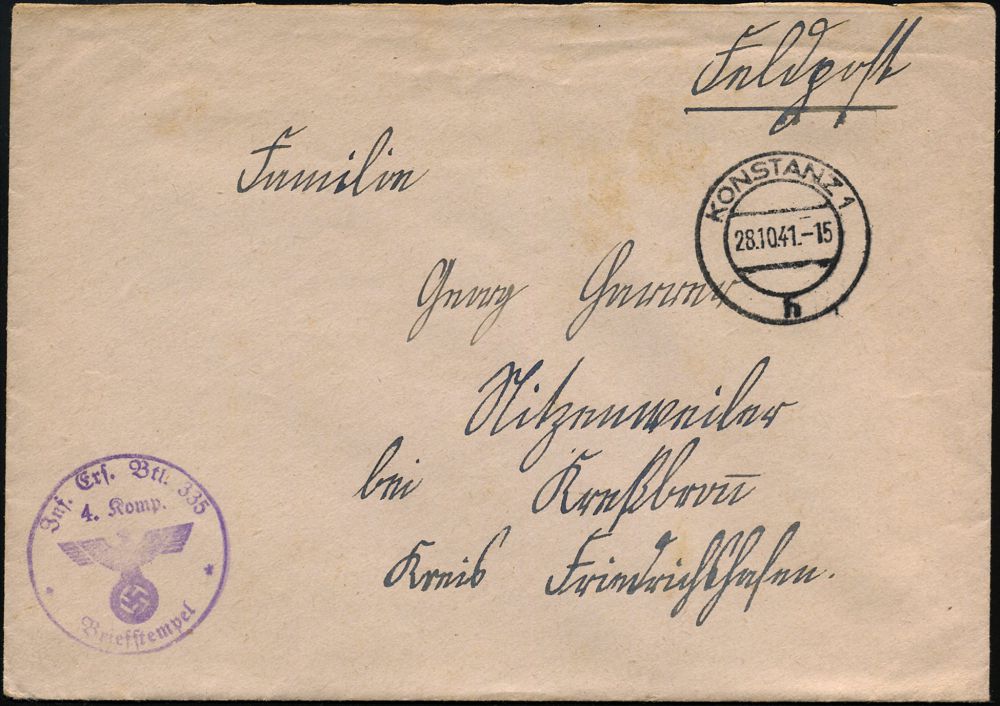 Feldpost
Familie
KONSTANZ 1
28.10.41.-15
h
Georg
Nitzenweiler
bei Kreßbronn
Kreis Friedrichshafen.
Inf. Ers. Btl. 335
4. Komp.
Briefstempel